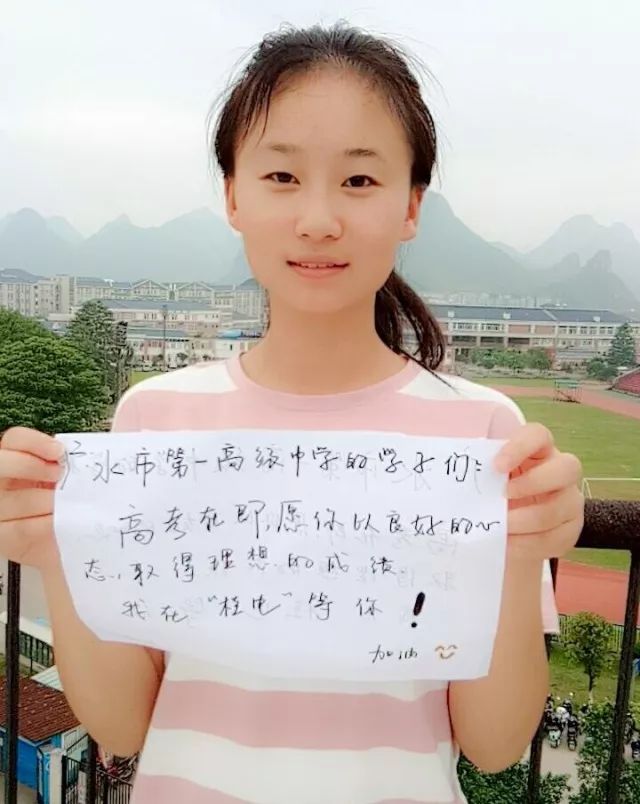 广水市第一高级中学的学子们:
高考在即,愿你以良好的心
态,取得理想的成绩.
我在"桂电"等你!
加油